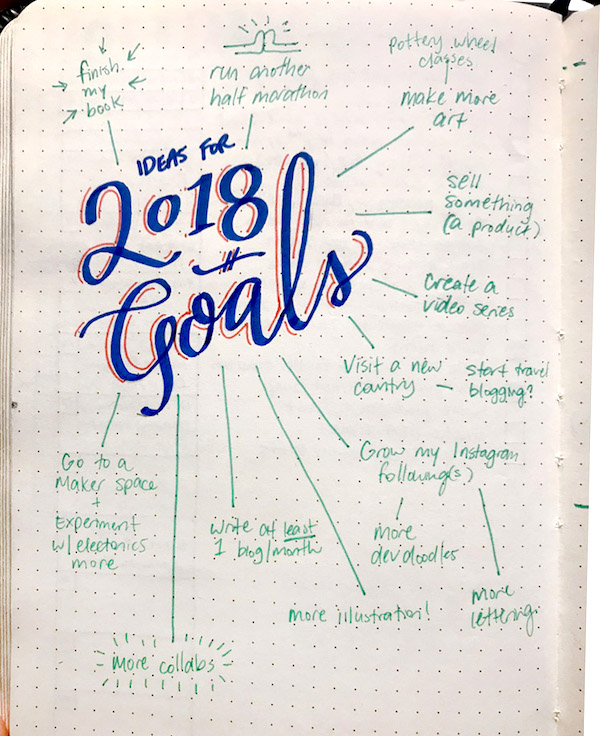 finish
my
book
run another
half marathon
pottery wheel
classes
make more
art
IDEAS FOR
2018
Goals
sell
something
(a product)
Create a
video series
Visit a new
country
start travel
blogging?
Grow my Instagram
following(s)
more
dev doodles
more
lettering
more illustration!
Write at least
1 blog/month
Go to a
Maker space
+
Experiment
w/electonics
more
more collabs